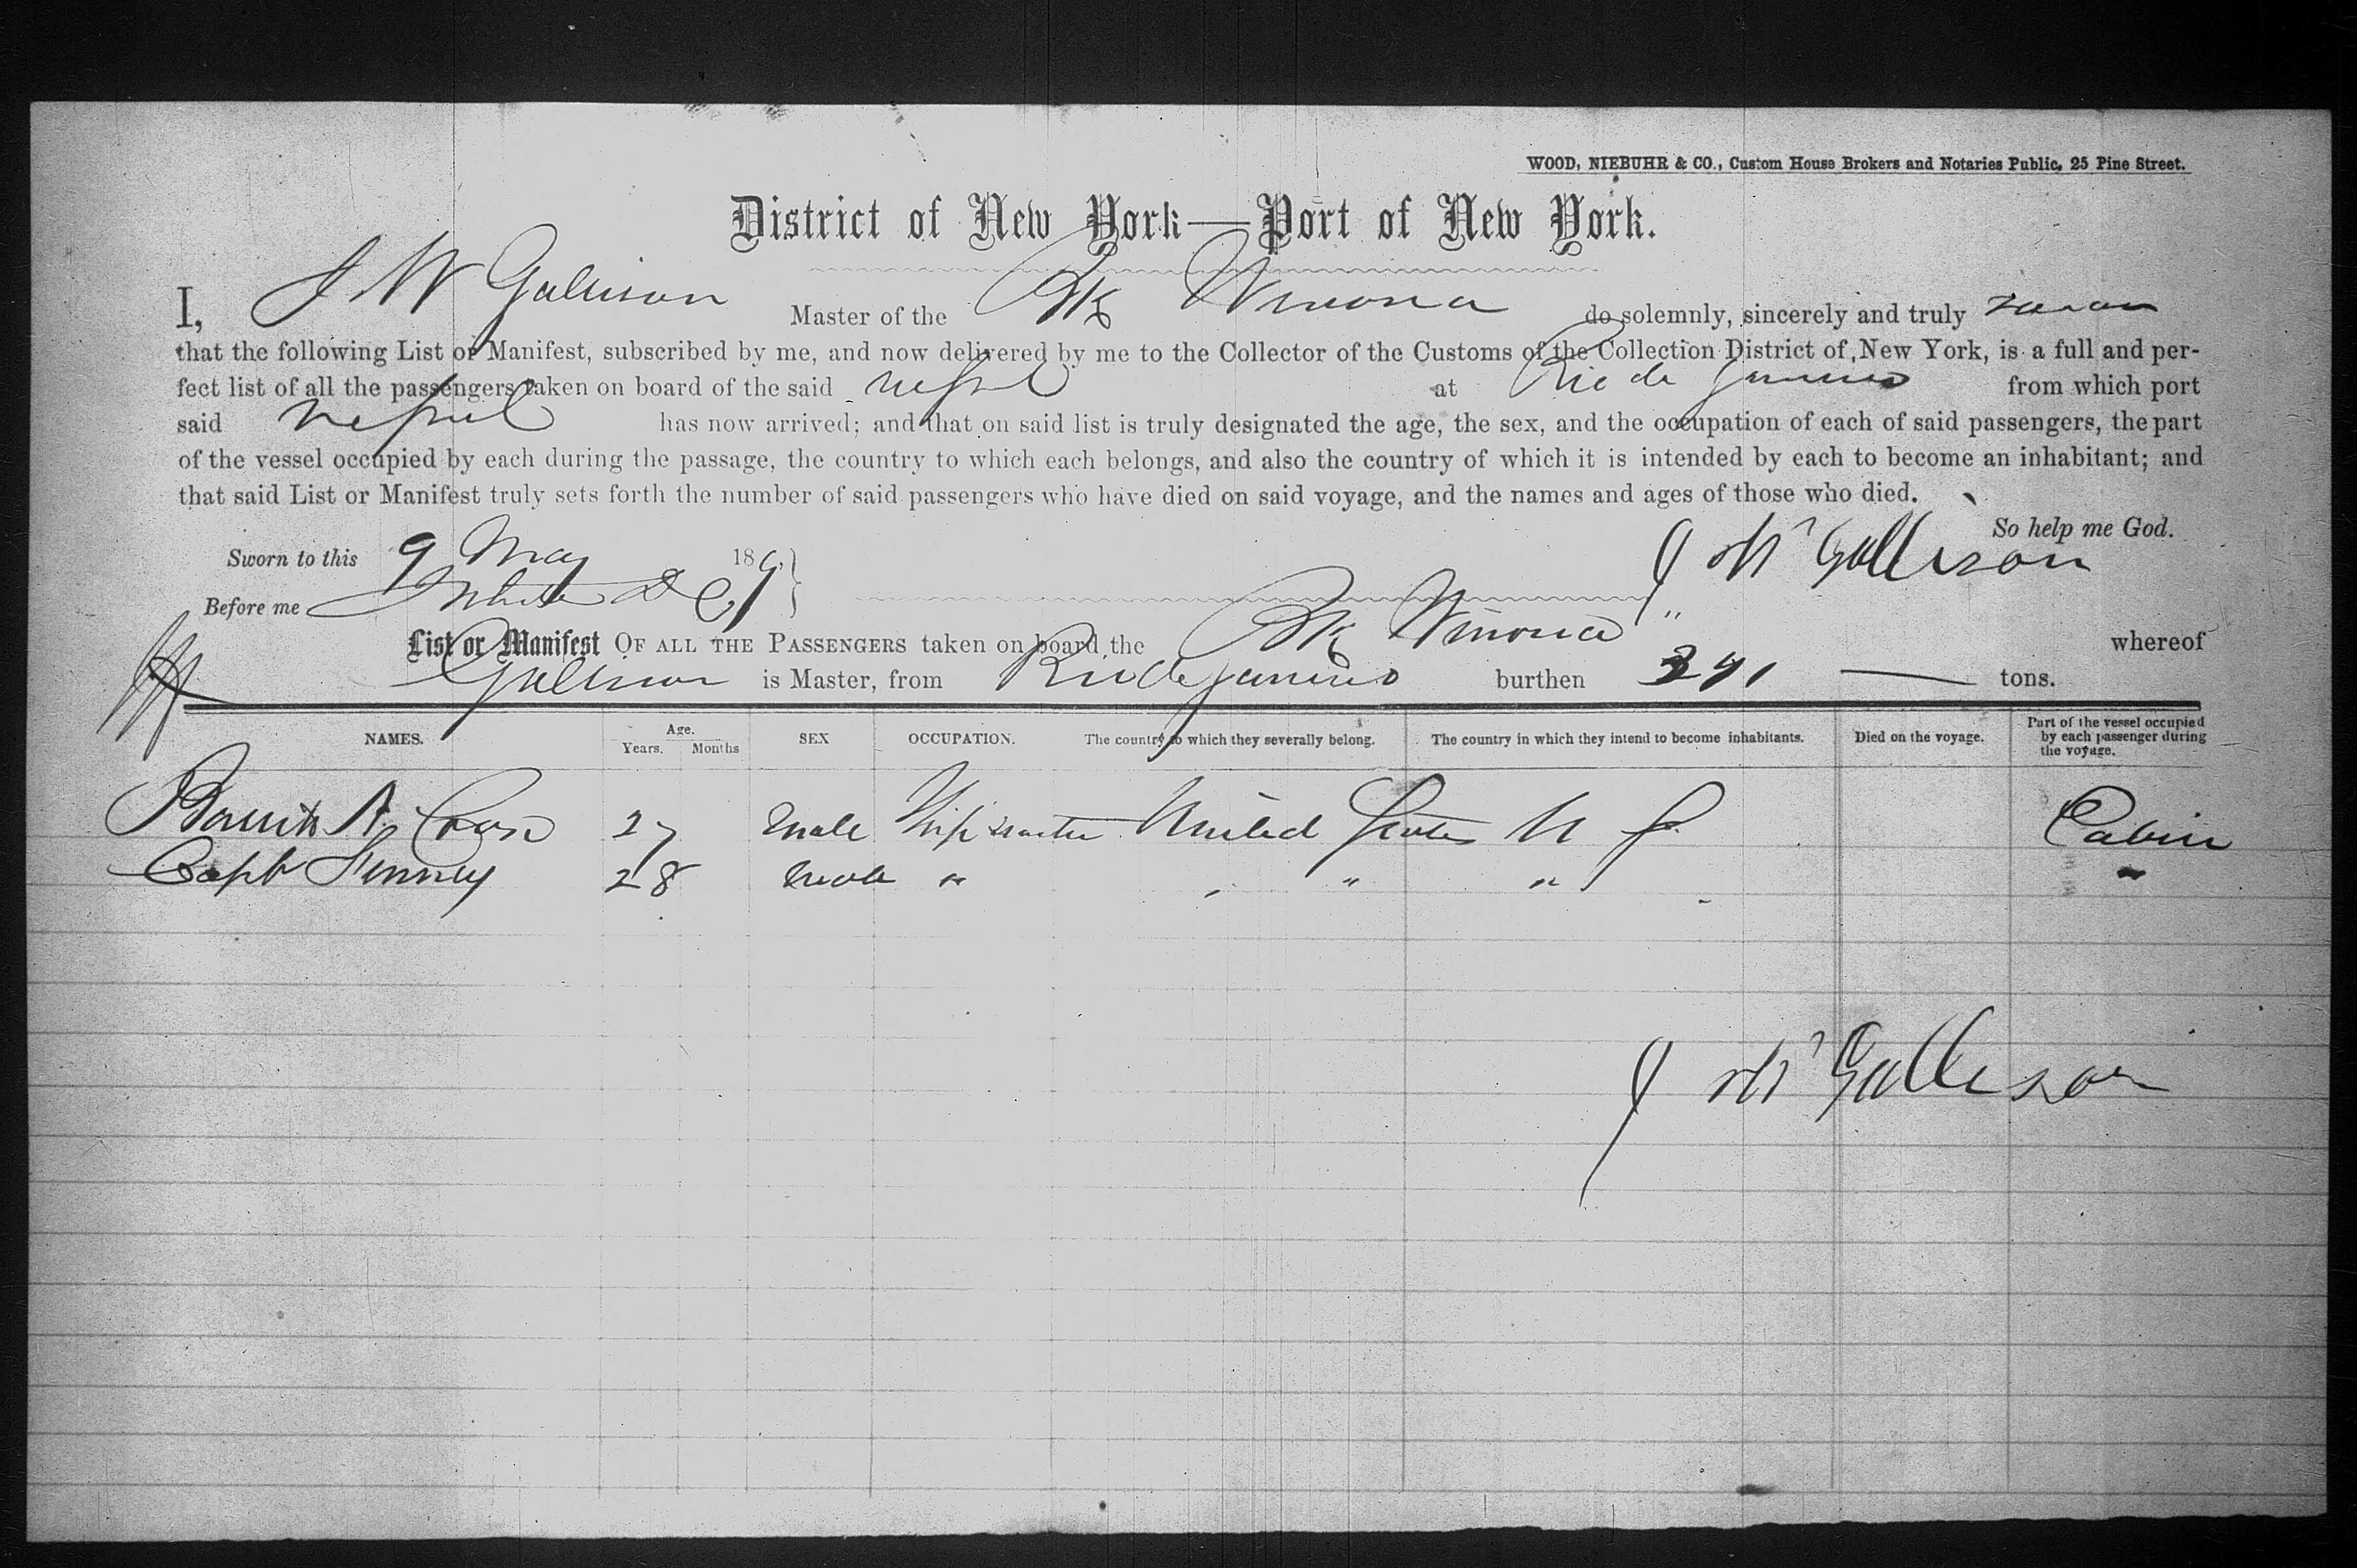 WOOD, NIEBUHR & CO., Custom House Brokers and Notaries Public, 25 Pine Street.
District of New York—Port of New York.
I, J W Gallison Master of the Bk Winona do solemnly, sincerely and truly swear
that the following List or Manifest, subscribed by me, and now delivered by me to the Collector of the Customs of the Collection District of New York, is a full and per-
fect list of all the passengers taken on board of the said vessel at Rio de Janeiro from which port
said vessel has now arrived; and that on said list is truly designated the age, the sex, and the occupation of each of said passengers, the part
of the vessel occupied by each during the passage, the country to which each belongs, and also the country of which it is intended by each to become an inhabitant; and
that said List or Manifest truly sets forth the number of said passengers who have died on said voyage, and the names and ages of those who died.
So help me God.
Sworn to this 9 May 18 J W Gallison
Before me
List or Manifest OF ALL THE PASSENGERS taken on board the Bk Winona whereof
Gallison is Master, from Rio de Janeiro burthen 341 tons.
NAMES. Age. Years. Months SEX OCCUPATION. The country to which they severally belong. The country in which they intend to become inhabitants. Died on the voyage. Part of the vessel occupied by each passenger during the voyage.
27 male Shipmaster United States U S. Cabin
Capt 28 male " " " " "
J W Gallison